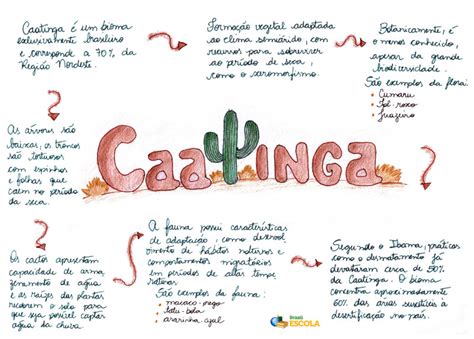 Caatinga é um bioma
exclusivamente brasileiro
e corresponde a 70% da
Região Nordeste.
Formação vegetal adaptada
ao clima semiárido, com
recursos para sobreviver
ao período de seca,
como o xeromorfismo.
Botanicamente, é
o menos conhecido,
apesar da grande
biodiversidade.
São exemplos da flora:
• Cumaru
• Ipê-roxo
• Juazeiro
As árvores são
baixas, os troncos
são tortuosos
com espinhos
e folhas que
caem no período
da seca.
CAATINGA
Os cactos apresentam
capacidade de arma_
zenamento de água,
e as raízes das plantas
recobrem o solo para
que seja possível captar
água da chuva.
A fauna possui características
de adaptação, como desenvol_
vimento de hábitos noturnos e
comportamentos migratórios
em períodos de altas tempe_
raturas.
São exemplos da fauna:
• macaco-prego
• tatu-bola
• ararinha azul
Segundo o Ibama, práticas
como o desmatamento já
devastaram cerca de 50%
da Caatinga. O bioma
concentra aproximadamente
60% das áreas suscetíveis à
desertificação no país.
Brasil
ESCOLA